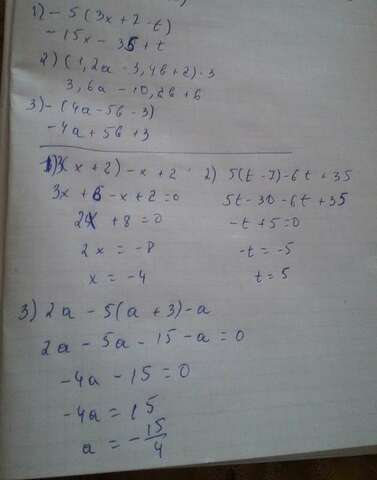 1) - 5 (3x + 2 - t)
- 15x - 35 + t
2) (1,2a - 3,4b + 2) · 3
3,6a - 10,2b + 6
3) - (4a - 5b - 3)
- 4a + 5b + 3
1) 3(x + 2) - x + 2
3x + 6 - x + 2 = 0
2x + 8 = 0
2x = -8
x = -4
2) 5(t - 7) - 6t + 35
5t - 30 - 6t + 35
-t + 5 = 0
-t = -5
t = 5
3) 2a - 5(a + 3) - a
2a - 5a - 15 - a = 0
-4a - 15 = 0
-4a = 15
a = -15/4